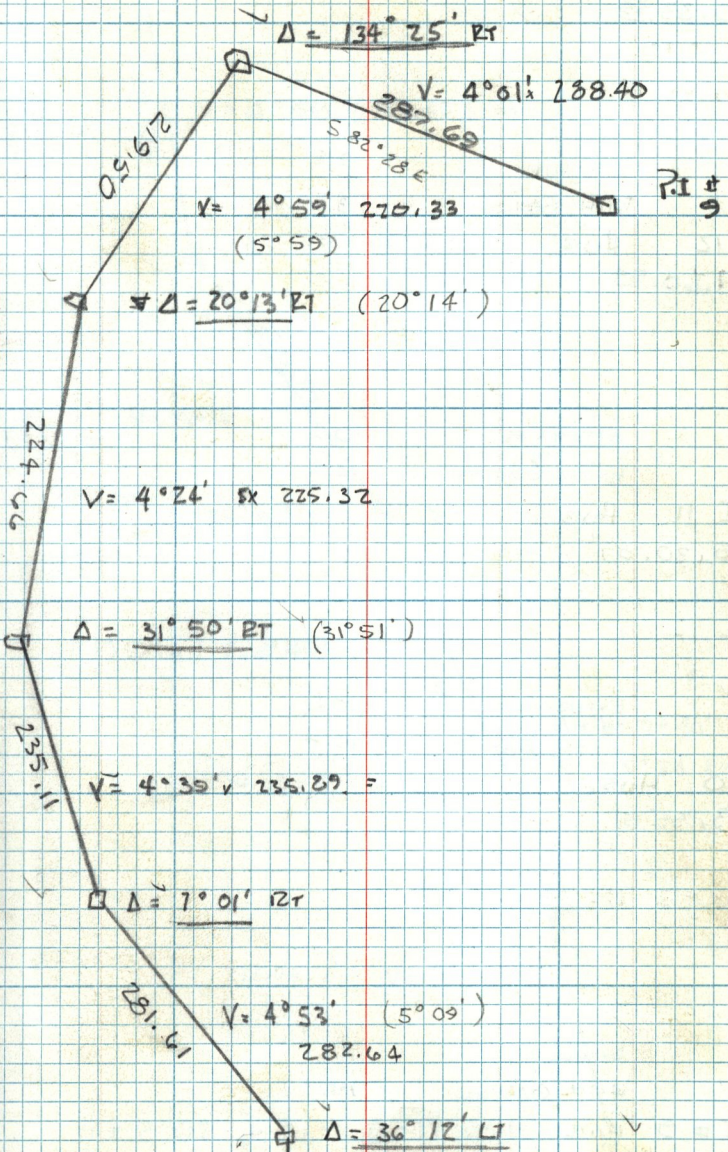 Δ = 134° 25' RT
V= 4°01' x 288.40
287.69
S 82°28 E
219.50
P.I #
9
V= 4°59' 220.33
(5°59)
Δ = 20°13' RT (20°14')
224.66
V= 4°24' x 225.32
Δ = 31° 50' RT (31°51')
235.11
V= 4°35' x 235.89 =
Δ = 7° 01' RT
281.61
V= 4° 53' (5°09')
282.64
Δ = 36° 12' LT